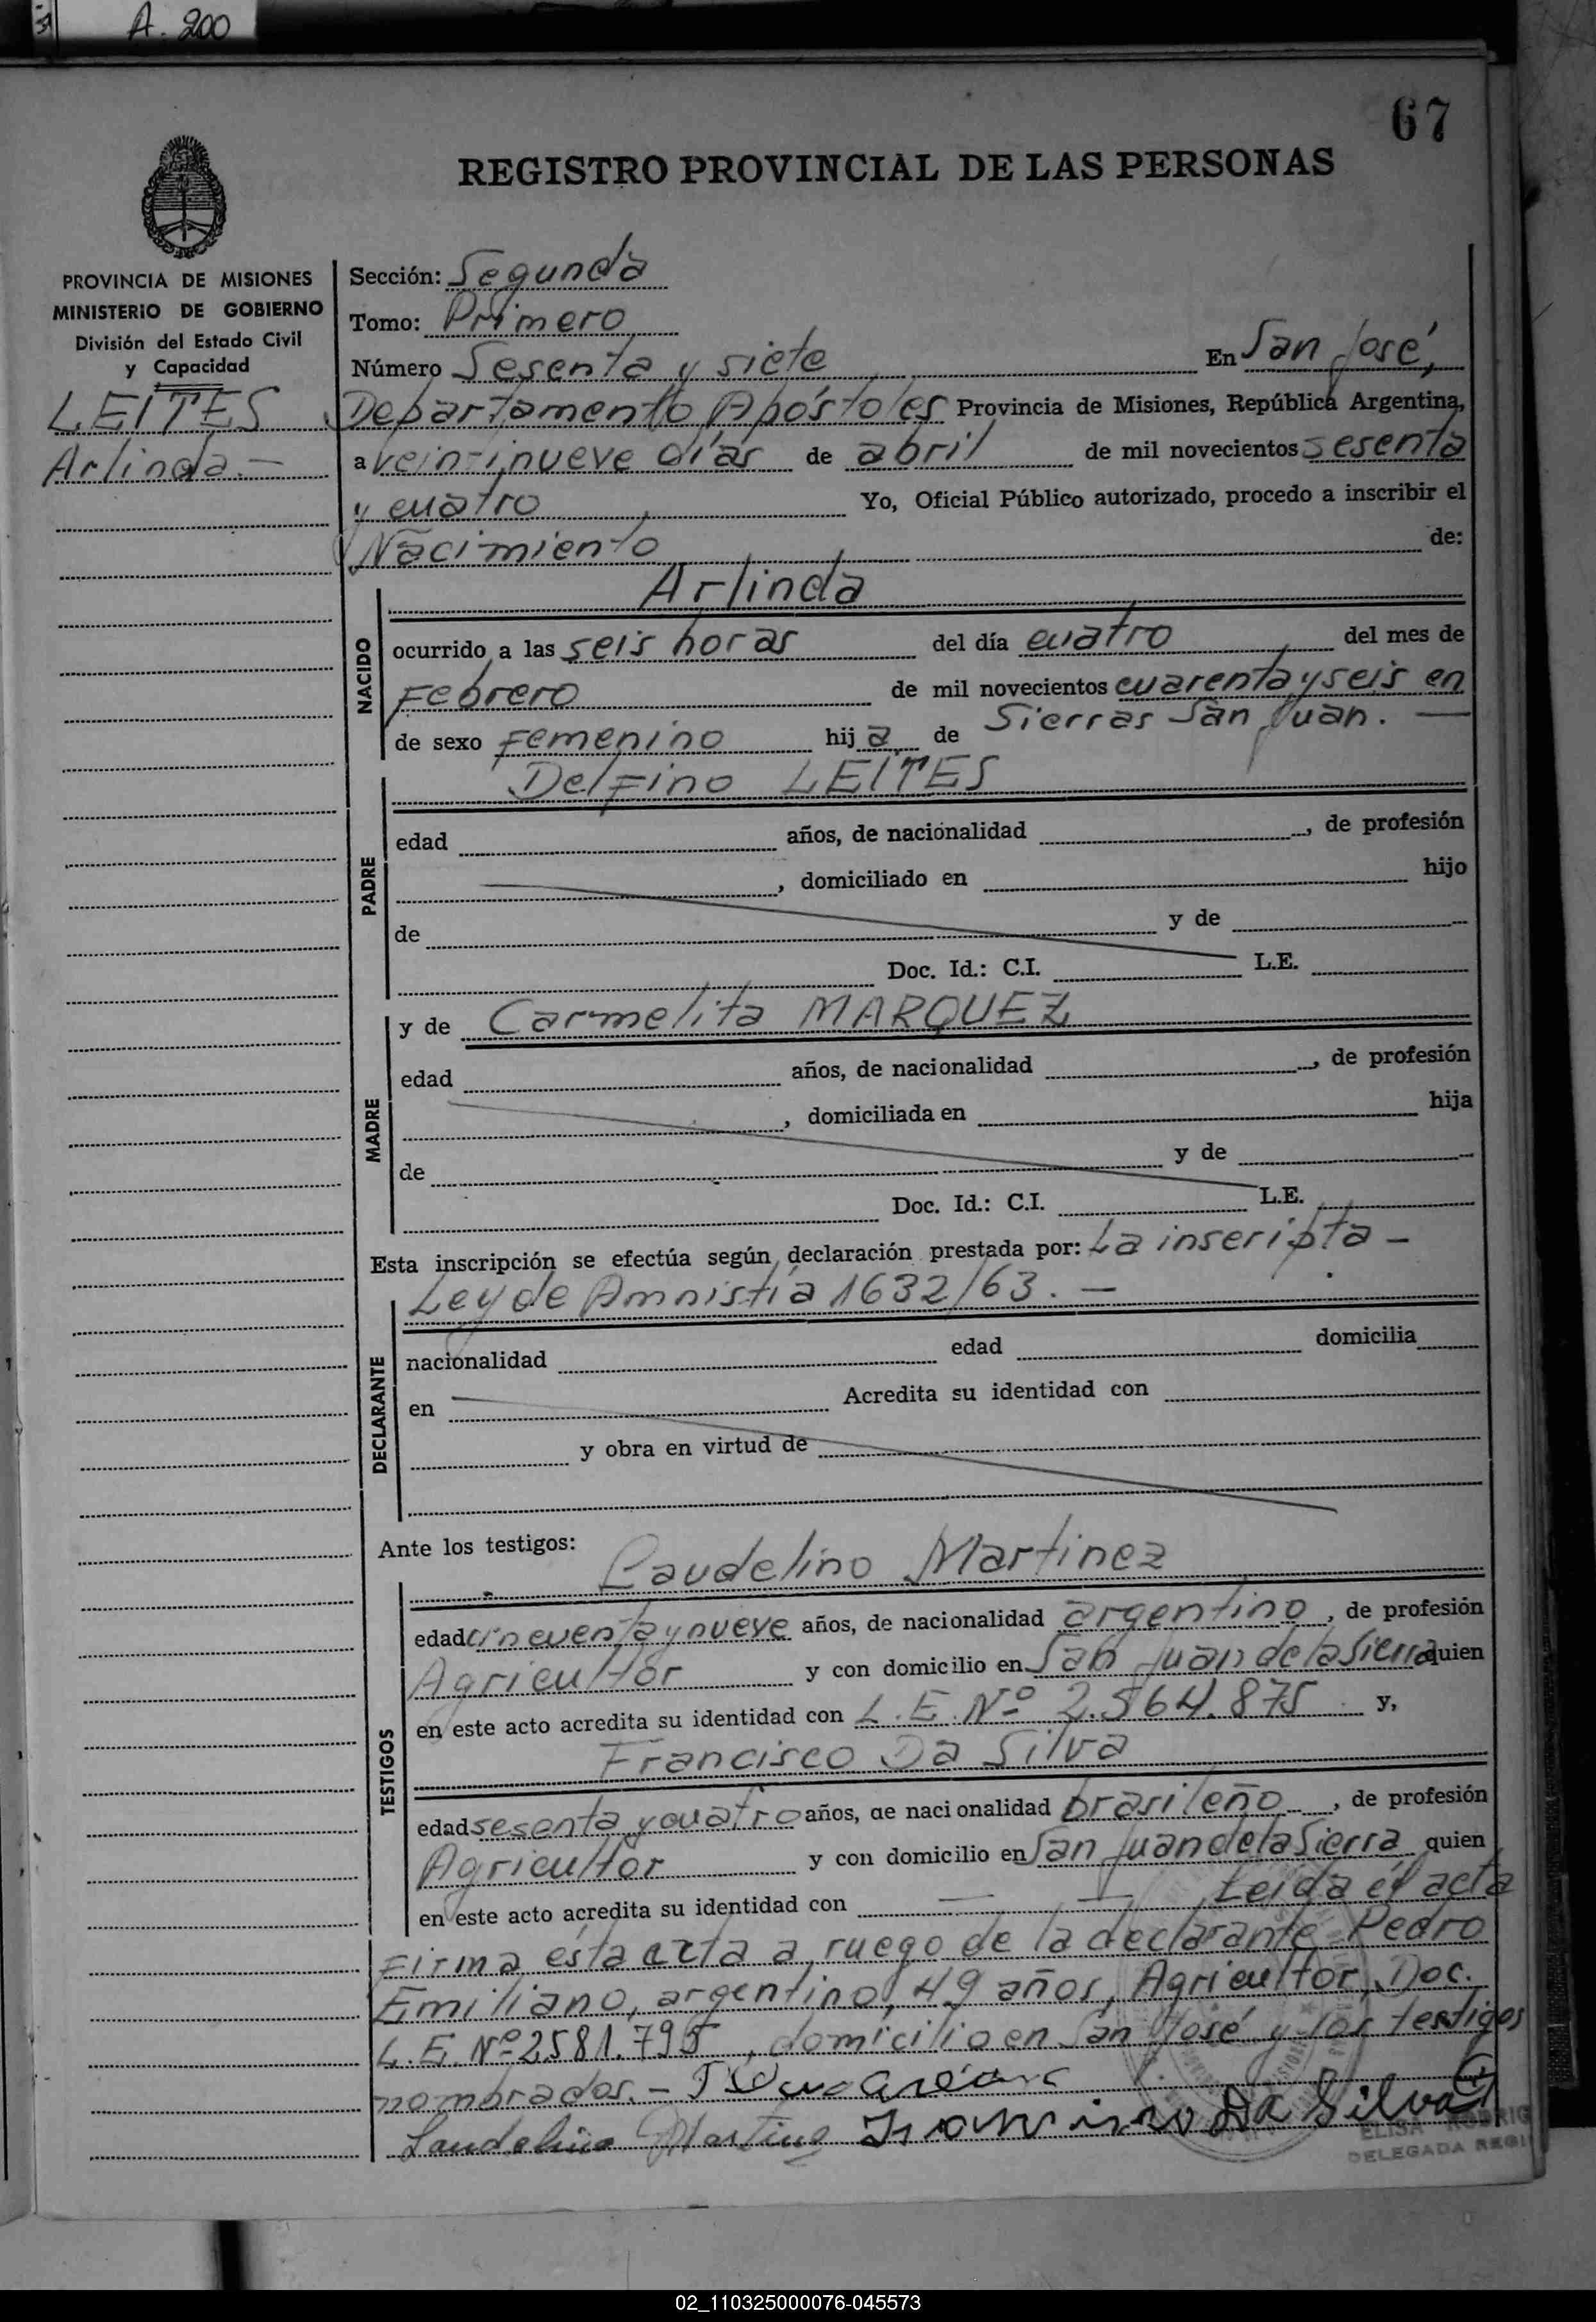 A. 200
67
REGISTRO PROVINCIAL DE LAS PERSONAS
PROVINCIA DE MISIONES
MINISTERIO DE GOBIERNO
División del Estado Civil
y Capacidad
LEITES
Arlinda.—
Sección: Segunda
Tomo: Primero
Número Sesenta y siete En San José,
Departamento Apóstoles Provincia de Misiones, República Argentina,
a veintinueve días de abril de mil novecientos sesenta
y cuatro Yo, Oficial Público autorizado, procedo a inscribir el
Nacimiento de:
Arlinda
NACIDO
ocurrido a las seis horas del día cuatro del mes de
Febrero de mil novecientos cuarenta y seis en
Sierras San Juan. —
de sexo Femenino hija de
Delfino LEITES
PADRE
edad años, de nacionalidad , de profesión
, domiciliado en hijo
de y de
Doc. Id.: C.I. L.E.
y de Carmelita MARQUEZ
MADRE
edad años, de nacionalidad , de profesión
, domiciliada en hija
de y de
Doc. Id.: C.I. L.E.
Esta inscripción se efectúa según declaración prestada por: La inscripta —
Ley de Amnistía 1632/63. —
DECLARANTE
nacionalidad edad domicilia
en Acredita su identidad con
y obra en virtud de
Ante los testigos:
Laudelino Martinez
TESTIGOS
edad cincuenta y nueve años, de nacionalidad argentino, de profesión
Agricultor y con domicilio en San Juan de la Sierra quien
en este acto acredita su identidad con L.E. Nº 2.564.875 y,
Francisco Da Silva
edad sesenta y cuatro años, de nacionalidad brasileño, de profesión
Agricultor y con domicilio en San Juan de la Sierra quien
en este acto acredita su identidad con — — Leída él acta
Firma ésta acta a ruego de la declarante Pedro
Emiliano, argentino, 49 años, Agricultor, Doc.
L.E. Nº 2581.795, domicilio en San José y los testigos
nombrados.—
Laudelino Martinez Francisco Da Silva
ELISA
DELEGADA REGI
02_110325000076-045573